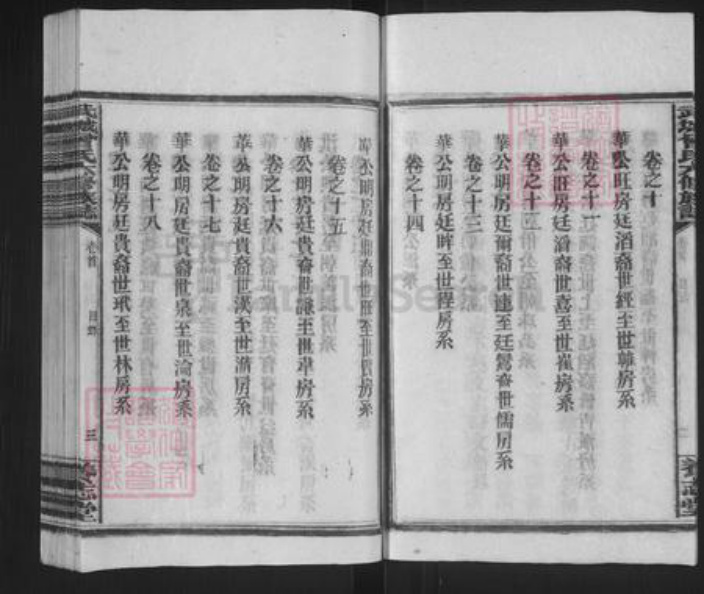 卷之十
華公旺房廷滔裔世經至世韓房系
卷之十一
華公旺房廷滔裔世喜至世崔房系
卷之十二
華公明房廷爾裔世連至廷鴛裔世儒房系
卷之十三
華公明房廷眸至世程房系
卷之十四
卷之十五
華公明房廷貴裔世謙至世韋房系
卷之十六
華公明房廷貴裔世漢至世湝房系
卷之十七
華公明房廷貴裔世泉至世淪房系
卷之十八
華公明房廷貴裔世玳至世林房系
武城曾氏六修族譜
卷首
目錄
三